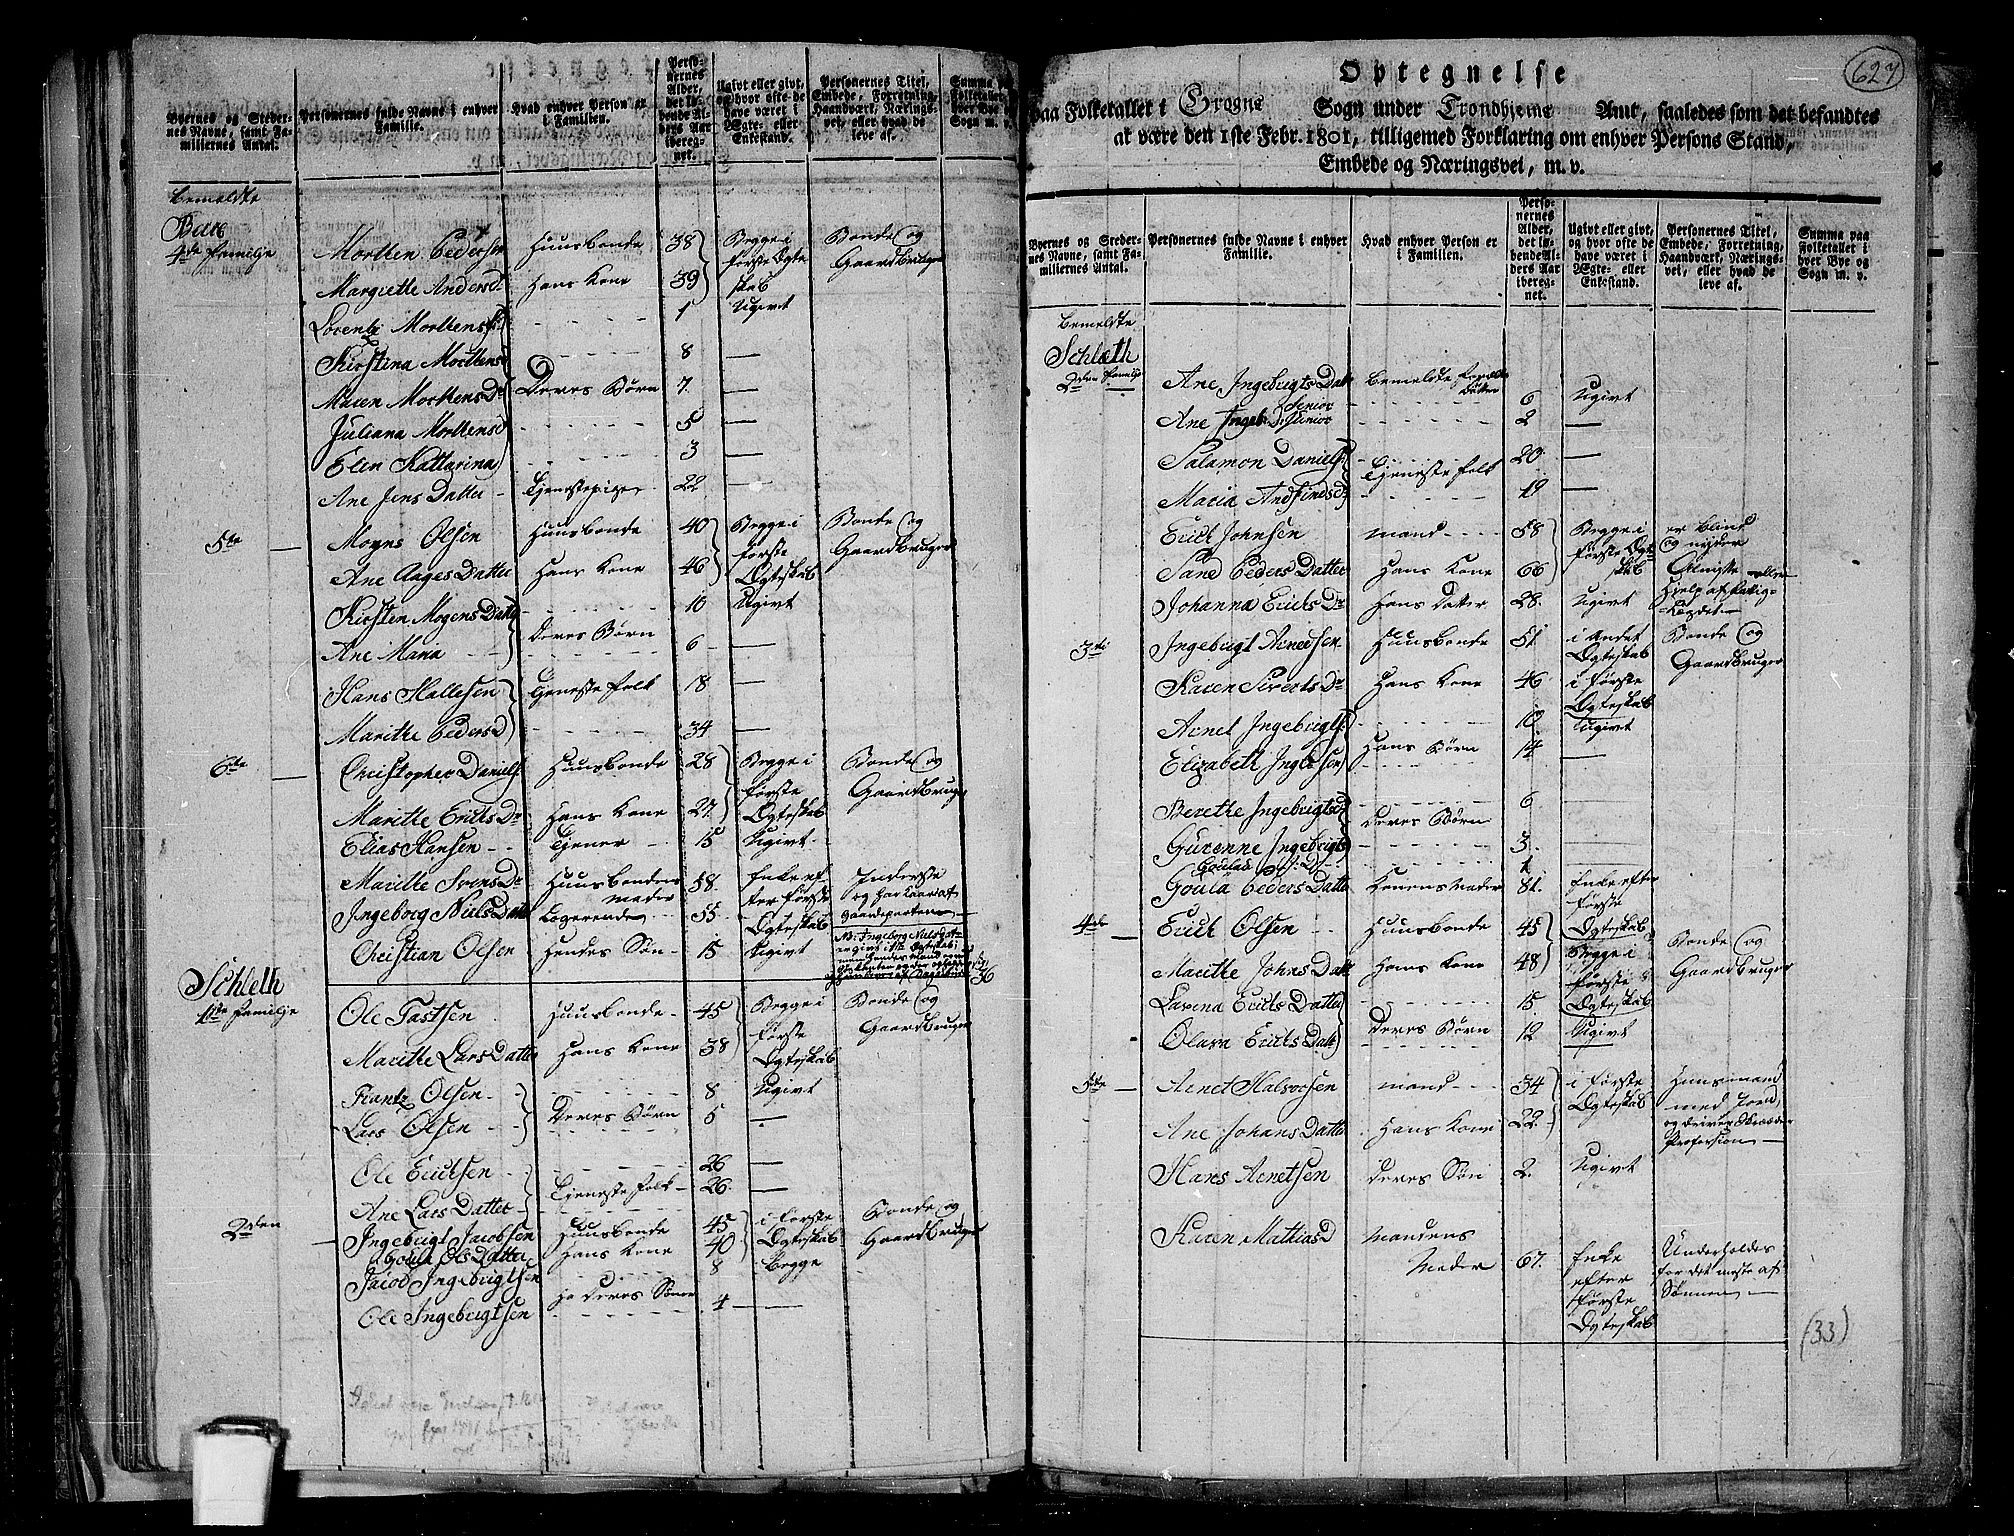 Byernes og Steder-
nes Navne, samt Fa-
miliernes Antal.
Personernes fulde Navne i enhver
Familie.
Hvad enhver Person er
i Familien.
Perso-
nernes
Alder,
det lø-
bende Al-
ders Aar
ibereg-
net.
Ugivt eller givt,
og hvor ofte de
have været i
Ægte- eller
Enkestand.
Personernes Titel,
Embede, Forretning,
Haandværk, Nærings-
vei, eller hvad de
leve af.
Summa paa
Folketallet i
hver Bye og
Sogn m. v.
bemeldte
4de familje
Morthen Pedersen Huusbonde 38 Begge i Bonde og
Margrethe Andersd hans Kone 39 første Ægte Gaardbruger
skab
Lorentz Morthens 1 Ugivt
Kirstina Morthensd 8 —
Maren Morthens Dr Deres Børn 7 —
Juliana Morthensd 5 —
Elen Kattarina 3 —
Ane Jens Datter Tjenestepige 22 —
5te Mogns Olsen Huusbonde 40 Begge i Bonde og
første Gaardbruger
Ane Aages Datter hans Kone 46 Ægteskab
Kirsten Mogens Datter 10 Ugivt
Deres Børn
Ane Maria 6 —
Hans Hallesen Tjeneste folk 18 —
Marithe Pedersd 34 —
6te Christopher Daniels Huusbonde 28 Begge i Bonde og
første Gaardbruger
Marithe Erichs Dr hans Kone 27 Ægteskab
Elias Hansen Tjener 15 Ugivt
Marithe Svens Dr Huusbondens moder 58 Enke ef
ter første
Ingeborg Niels Datter Logerende 55 Ægteskab
Christian Olsen hendes Søn 15 Ugivt
36
Schleth
1ste familje
Ole Tastsen Huusbonde 45 Begge i Bonde og
første Gaardbruger
Marithe Lars Datter hans Kone 38 Ægteskab
Frantz Olsen 8 Ugivt
Deres Børn
Lars Olsen 5 —
Ole Erichsen 26 —
Tjeneste folk
Ane Lars Datter 26 —
2den Ingebrigt Jacobsen Huusbonde 45 i første Bonde og
Goula Ols Datter hans Kone 40 Ægteskab Gaardbruger
Jacob Ingebrigtsen 8 Begge
Deres Sønner
Ole Ingebrigtsen 4 —
627
Optegnelse
paa Folketallet i Hrogns Sogn under Trondhjems Amt, saaledes som det befandtes
at være den 1ste Febr. 1801, tilligemed Forklaring om enhver Persons Stand,
Embede og Næringsvei, m. v.
Byernes og Steder-
nes Navne, samt Fa-
miliernes Antal.
Personernes fulde Navne i enhver
Familie.
Hvad enhver Person er
i Familien.
Perso-
nernes
Alder,
det lø-
bende Al-
ders Aar
ibereg-
net.
Ugivt eller givt,
og hvor ofte de
have været i
Ægte- eller
Enkestand.
Personernes Titel,
Embede, Forretning,
Haandværk, Nærings-
vei, eller hvad de
leve af.
Summa paa
Folketallet i
hver Bye og
Sogn m. v.
bemeldte
Schlæth
2den familje
Ane Ingebrigts Datter Senior 6 Ugivt
Ane Ingeb. D. Junior 2 —
Salamon Daniels 20 —
Tjeneste folk
Maria Andfindsd 19 —
Erich Johnsen mand 58 Begge i er blind
første Ægte og nyder
Sane Peders Datter hans Kone 66 skab
Johanna Erichs Dr hans Datter 28 Ugivt
3die Ingebrigt Arnedsen Huusbonde 51 i Andet Bonde og
Ægteskab Gaardbruger
Karen Siverts Dr hans Kone 46 i første
Ægteskab
Arnet Ingebrigts 10 Ugivt
hans Børn
Elizabeth Ingbdsen 14 —
Berethe Ingebrigtsd 6
Deres Børn
Gurenne Ingebrigts 3
1
Goula Peders Datter Konens Moder 81 Enke efter
første
4de Erich Olsen Huusbonde 45 Ægteskab Bonde og
Begge i Gaardbruger
Marithe Johns Datt hans Kone 48 første
Larina Erichs Datter 15 Ægteskab
Olava Erichs Datt Deres Børn 12 Ugivt
5te Arnet Halvorsen mand 34 i første Huusmand
Ægteskab med Jord,
Ane Johans Datter hans Kone 22 og driver Skræder
Profession
Hans Arnetsen Deres Søn 2 Ugivt
Karen Mathiasd mandens
Moder 67 Enke Underholdes
efter for det meste af
første Sønnen
Ægteskab
(33)